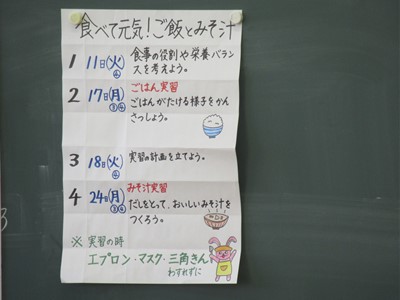 食べて元気!ご飯とみそ汁
1 11日(火)④ 食事の役割や栄養バランスを考えよう。
2 17日(月)③④ ごはん実習
ごはんがたける様子をかんさっしょう。
3 18日(火)④ 実習の計画を立てよう。
4 24日(月)③④ みそ汁実習
だしをとって、おいしいみそ汁をつくろう。
※ 実習の時
エプロン・マスク・三角きん
わすれずに